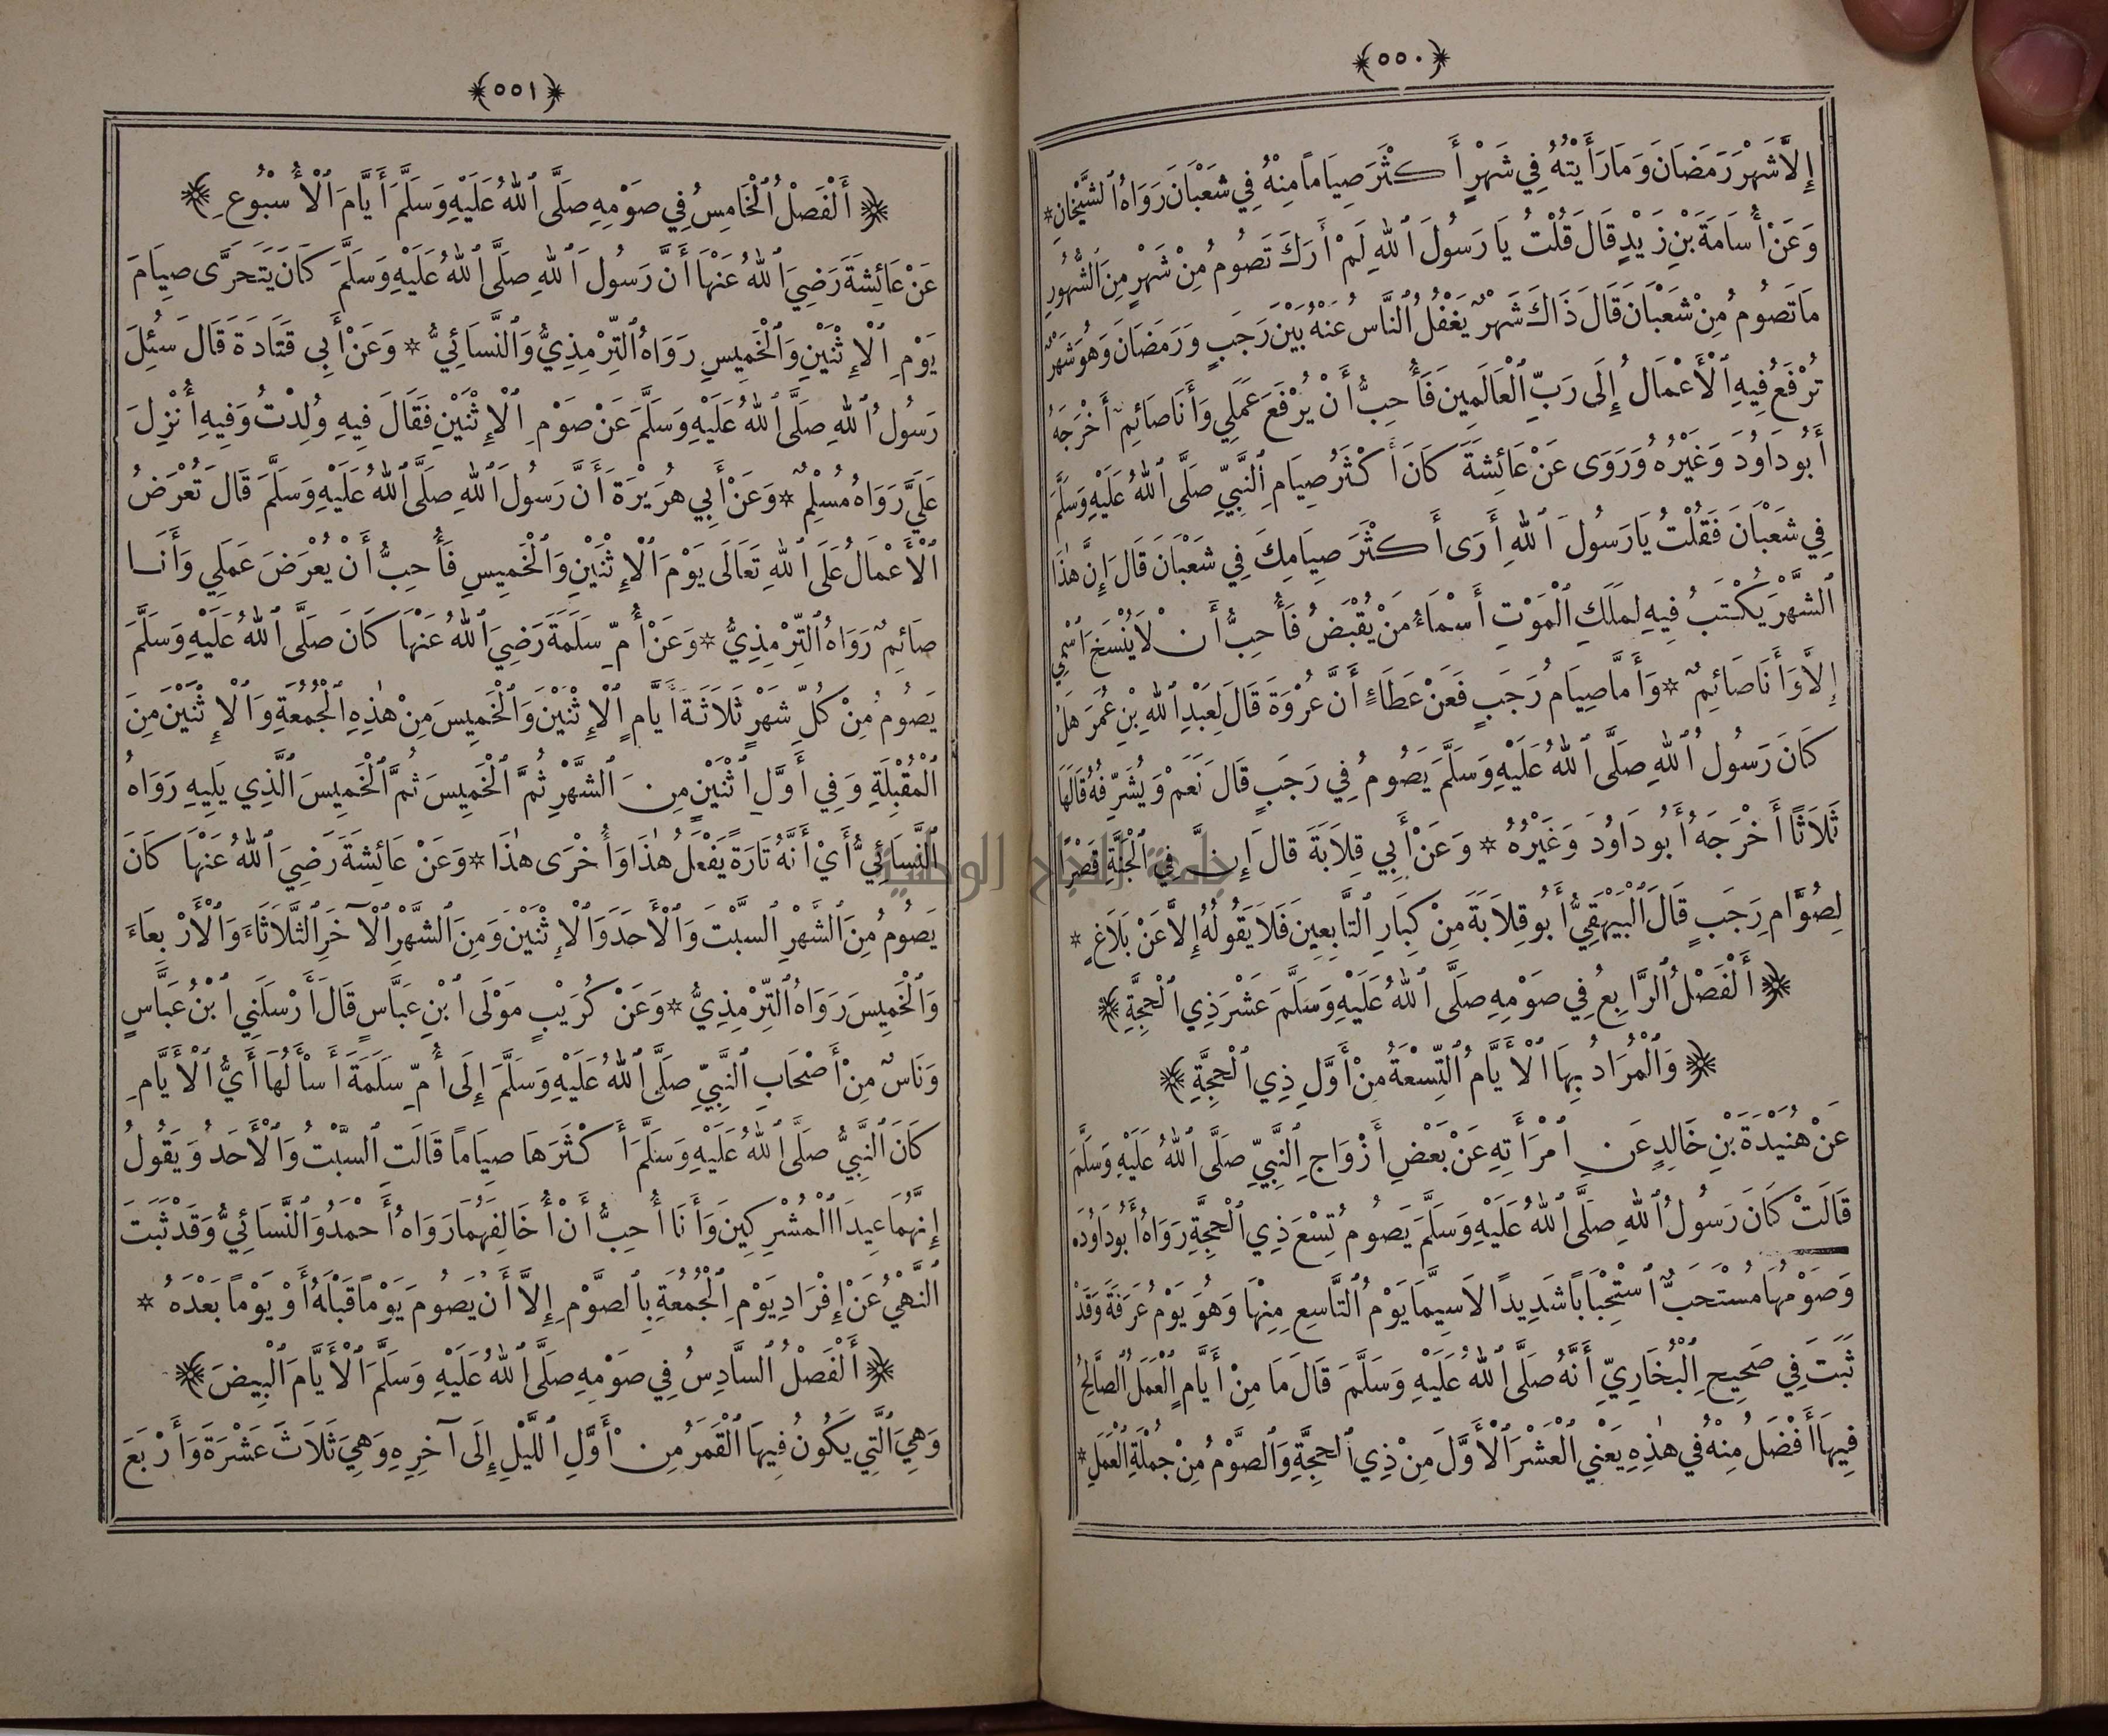 ﴿٥٥٠﴾
إِلَّا شَهْرَ رَمَضَانَ وَمَا رَأَيْتُهُ فِي شَهْرٍ أَكْثَرَ صِيَامًا مِنْهُ فِي شَعْبَانَ رَوَاهُ ٱلشَّيْخَانِ *
وَعَنْ أُسَامَةَ بْنِ زَيْدٍ قَالَ قُلْتُ يَا رَسُولَ ٱللهِ لَمْ أَرَكَ تَصُومُ مِنْ شَهْرٍ مِنَ ٱلشُّهُورِ
مَا تَصُومُ مِنْ شَعْبَانَ قَالَ ذَاكَ شَهْرٌ يَغْفُلُ ٱلنَّاسُ عَنْهُ بَيْنَ رَجَبٍ وَرَمَضَانَ وَهُوَ شَهْرٌ
تُرْفَعُ فِيهِ ٱلْأَعْمَالُ إِلَى رَبِّ ٱلْعَالَمِينَ فَأُحِبُّ أَنْ يُرْفَعَ عَمَلِي وَأَنَا صَائِمٌ أَخْرَجَهُ
أَبُو دَاوُدَ وَغَيْرُهُ وَرَوَى عَنْ عَائِشَةَ كَانَ أَكْثَرُ صِيَامِ ٱلنَّبِيِّ صَلَّى ٱللهُ عَلَيْهِ وَسَلَّمَ
فِي شَعْبَانَ فَقُلْتُ يَا رَسُولَ ٱللهِ أَرَى أَكْثَرَ صِيَامِكَ فِي شَعْبَانَ قَالَ إِنَّ هٰذَا
ٱلشَّهْرَ يُكْتَبُ فِيهِ لِمَلَكِ ٱلْمَوْتِ أَسْمَاءُ مَنْ يُقْبَضُ فَأُحِبُّ أَن لَا يُنْسَخَ ٱسْمِي
إِلَّا وَأَنَا صَائِمٌ * وَأَمَّا صِيَامُ رَجَبٍ فَعَنْ عَطَاءٍ أَنَّ عُرْوَةَ قَالَ لِعَبْدِ ٱللهِ بْنِ عُمَرَ هَلْ
كَانَ رَسُولُ ٱللهِ صَلَّى ٱللهُ عَلَيْهِ وَسَلَّمَ يَصُومُ فِي رَجَبٍ قَالَ نَعَمْ وَيُشَرِّفُهُ قَالَهَا
ثَلَاثًا أَخْرَجَهُ أَبُو دَاوُدَ وَغَيْرُهُ * وَعَنْ أَبِي قِلَابَةَ قَالَ إِنَّ فِي ٱلْجَنَّةِ قَصْرًا
لِصُوَّامِ رَجَبٍ قَالَ ٱلْبَيْهَقِيُّ أَبُو قِلَابَةَ مِنْ كِبَارِ ٱلتَّابِعِينَ فَلَا يَقُولُهُ إِلَّا عَنْ بَلَاغٍ *
﴿ أَلْفَصْلُ ٱلرَّابِعُ فِي صَوْمِهِ صَلَّى ٱللهُ عَلَيْهِ وَسَلَّمَ عَشْرَ ذِي ٱلْحِجَّةِ ﴾
﴿ وَٱلْمُرَادُ بِهَا ٱلْأَيَّامُ ٱلتِّسْعَةُ مِنْ أَوَّلِ ذِي ٱلْحِجَّةِ ﴾
عَنْ هُنَيْدَةَ بْنِ خَالِدٍ عَنِ ٱمْرَأَتِهِ عَنْ بَعْضِ أَزْوَاجِ ٱلنَّبِيِّ صَلَّى ٱللهُ عَلَيْهِ وَسَلَّمَ
قَالَتْ كَانَ رَسُولُ ٱللهِ صَلَّى ٱللهُ عَلَيْهِ وَسَلَّمَ يَصُومُ تِسْعَ ذِي ٱلْحِجَّةِ رَوَاهُ أَبُو دَاوُدَ *
وَصَوْمُهَا مُسْتَحَبٌّ ٱسْتِحْبَابًا شَدِيدًا لَاسِيَّمَا يَوْمُ ٱلتَّاسِعِ مِنْهَا وَهُوَ يَوْمُ عَرَفَةَ وَقَدْ
ثَبَتَ فِي صَحِيحِ ٱلْبُخَارِيِّ أَنَّهُ صَلَّى ٱللهُ عَلَيْهِ وَسَلَّمَ قَالَ مَا مِنْ أَيَّامٍ ٱلْعَمَلُ ٱلصَّالِحُ
فِيهَا أَفْضَلُ مِنْهُ فِي هٰذِهِ يَعْنِي ٱلْعَشْرَ ٱلْأَوَّلَ مِنْ ذِي ٱلْحِجَّةِ وَٱلصَّوْمُ مِنْ جُمْلَةِ ٱلْعَمَلِ *
﴿٥٥١﴾
﴿ أَلْفَصْلُ ٱلْخَامِسُ فِي صَوْمِهِ صَلَّى ٱللهُ عَلَيْهِ وَسَلَّمَ أَيَّامَ ٱلْأُسْبُوعِ ﴾
عَنْ عَائِشَةَ رَضِيَ ٱللهُ عَنْهَا أَنَّ رَسُولَ ٱللهِ صَلَّى ٱللهُ عَلَيْهِ وَسَلَّمَ كَانَ يَتَحَرَّى صِيَامَ
يَوْمِ ٱلْإِثْنَيْنِ وَٱلْخَمِيسِ رَوَاهُ ٱلتِّرْمِذِيُّ وَٱلنَّسَائِيُّ * وَعَنْ أَبِي قَتَادَةَ قَالَ سُئِلَ
رَسُولُ ٱللهِ صَلَّى ٱللهُ عَلَيْهِ وَسَلَّمَ عَنْ صَوْمِ ٱلْإِثْنَيْنِ فَقَالَ فِيهِ وُلِدْتُ وَفِيهِ أُنْزِلَ
عَلَيَّ رَوَاهُ مُسْلِمٌ * وَعَنْ أَبِي هُرَيْرَةَ أَنَّ رَسُولَ ٱللهِ صَلَّى ٱللهُ عَلَيْهِ وَسَلَّمَ قَالَ تُعْرَضُ
ٱلْأَعْمَالُ عَلَى ٱللهِ تَعَالَى يَوْمَ ٱلْإِثْنَيْنِ وَٱلْخَمِيسِ فَأُحِبُّ أَنْ يُعْرَضَ عَمَلِي وَأَنَا
صَائِمٌ رَوَاهُ ٱلتِّرْمِذِيُّ * وَعَنْ أُمِّ سَلَمَةَ رَضِيَ ٱللهُ عَنْهَا كَانَ صَلَّى ٱللهُ عَلَيْهِ وَسَلَّمَ
يَصُومُ مِنْ كُلِّ شَهْرٍ ثَلَاثَةَ أَيَّامٍ ٱلْإِثْنَيْنَ وَٱلْخَمِيسَ مِنْ هٰذِهِ ٱلْجُمُعَةِ وَٱلْإِثْنَيْنَ مِنَ
ٱلْمُقْبِلَةِ وَفِي أَوَّلِ ٱثْنَيْنِ مِنَ ٱلشَّهْرِ ثُمَّ ٱلْخَمِيسَ ثُمَّ ٱلْخَمِيسَ ٱلَّذِي يَلِيهِ رَوَاهُ
ٱلنَّسَائِيُّ أَيْ أَنَّهُ تَارَةً يَفْعَلُ هٰذَا وَأُخْرَى هٰذَا * وَعَنْ عَائِشَةَ رَضِيَ ٱللهُ عَنْهَا كَانَ
يَصُومُ مِنَ ٱلشَّهْرِ ٱلسَّبْتَ وَٱلْأَحَدَ وَٱلْإِثْنَيْنَ وَمِنَ ٱلشَّهْرِ ٱلْآخَرِ ٱلثَّلَاثَاءَ وَٱلْأَرْبِعَاءَ
وَٱلْخَمِيسَ رَوَاهُ ٱلتِّرْمِذِيُّ * وَعَنْ كُرَيْبٍ مَوْلَى ٱبْنِ عَبَّاسٍ قَالَ أَرْسَلَنِي ٱبْنُ عَبَّاسٍ
وَنَاسٌ مِنْ أَصْحَابِ ٱلنَّبِيِّ صَلَّى ٱللهُ عَلَيْهِ وَسَلَّمَ إِلَى أُمِّ سَلَمَةَ أَسْأَلُهَا أَيُّ ٱلْأَيَّامِ
كَانَ ٱلنَّبِيُّ صَلَّى ٱللهُ عَلَيْهِ وَسَلَّمَ أَكْثَرَهَا صِيَامًا قَالَتِ ٱلسَّبْتُ وَٱلْأَحَدُ وَيَقُولُ
إِنَّهُمَا عِيدَا ٱلْمُشْرِكِينَ وَأَنَا أُحِبُّ أَنْ أُخَالِفَهُمَا رَوَاهُ أَحْمَدُ وَٱلنَّسَائِيُّ وَقَدْ ثَبَتَ
ٱلنَّهْيُ عَنْ إِفْرَادِ يَوْمِ ٱلْجُمُعَةِ بِٱلصَّوْمِ إِلَّا أَنْ يَصُومَ يَوْمًا قَبْلَهُ أَوْ يَوْمًا بَعْدَهُ *
﴿ أَلْفَصْلُ ٱلسَّادِسُ فِي صَوْمِهِ صَلَّى ٱللهُ عَلَيْهِ وَسَلَّمَ ٱلْأَيَّامَ ٱلْبِيضَ ﴾
وَهِيَ ٱلَّتِي يَكُونُ فِيهَا ٱلْقَمَرُ مِنْ أَوَّلِ ٱللَّيْلِ إِلَى آخِرِهِ وَهِيَ ثَلَاثَ عَشْرَةَ وَأَرْبَعَ
جامعة النجاح الوطنية